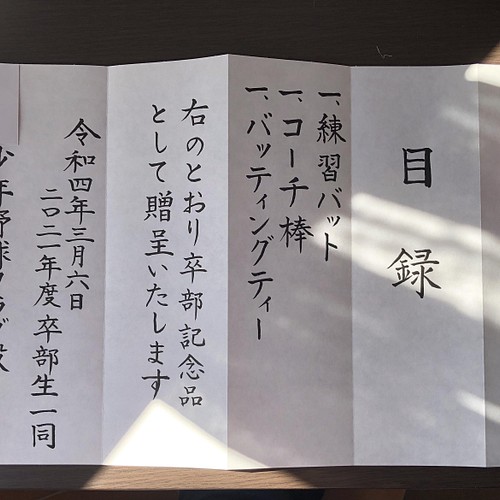 目録
一、練習バット
一、コーチ棒
一、バッティングティー
右のとおり卒部記念品
として贈呈いたします
令和四年三月六日
二〇二一年度卒部生一同
少年野球クラブ殿